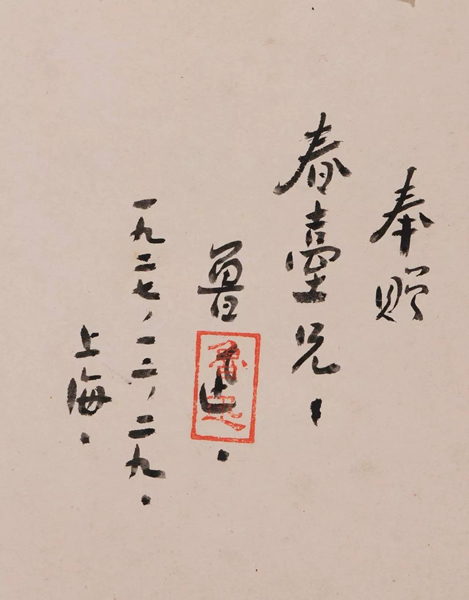 奉贈
春臺兄、
魯迅.
魯迅
一九二七、一二、二九.
上海.